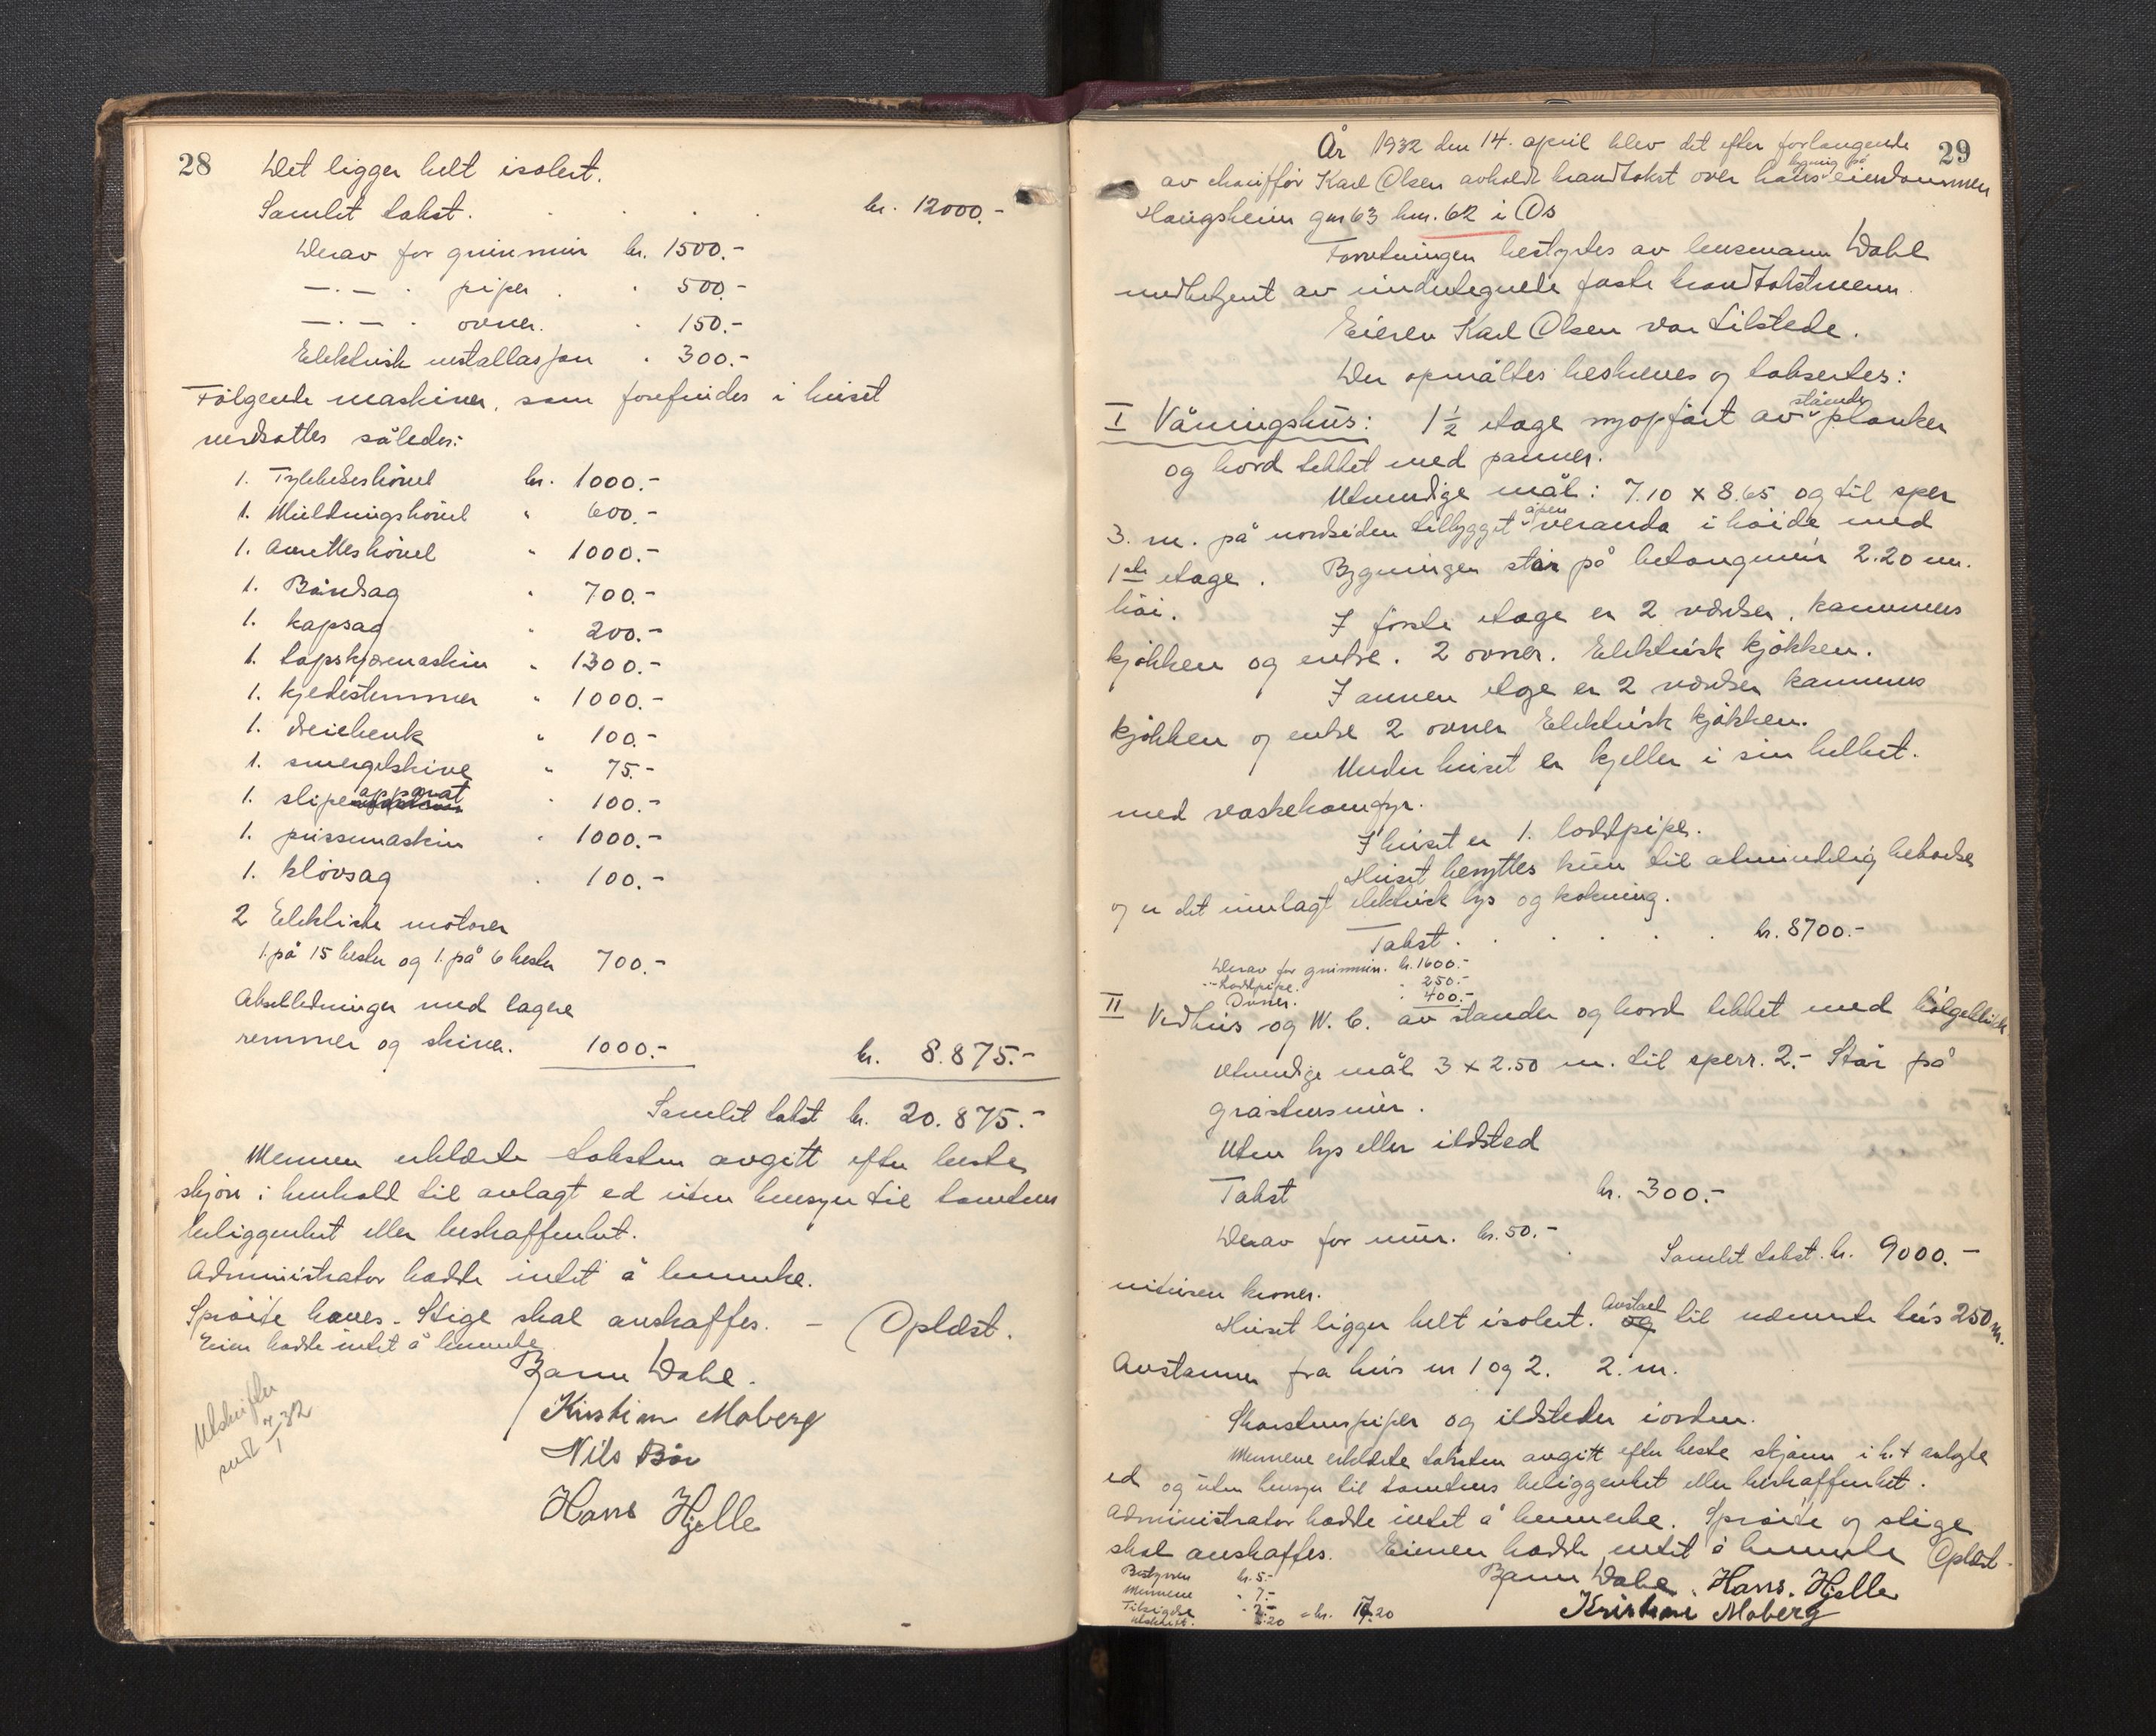 28
Det ligger helt isolert.
Samlet takst. . . . . kr. 12000.-
Derav for grunmur kr. 1500.-
—.— . piper . . 500.-
—.— . ovner. . 150.-
Elektrisk installasjon . 300.-
Følgende maskiner, som forefindes i huset
verdsattes således:
1. Tykkelseshøvel kr. 1000.-
1. Muldningshøvel " 600.-
1. Avrettehøvel " 1000.-
1. Båndsag " 700.-
1. kapsag " 200.-
1. tapskjæremaskin " 1300.-
1. kjedestemmer " 1000.-
1. dreiebenk " 100.-
1. smergelskive " 75.-
1. slipeapparat " 100.-
1. pussemaskin " 1000.-
1. kløvsag . 100.-
2 Elektriske motorer
1. på 15 hester og 1. på 6 hester 700.-
Akselledninger med lagere
remmer og skiver. 1000.- kr. 8.875.-
Samlet takst kr. 20.875.-
Mennene erklærte taksten avgitt efter beste
skjøn i henhold til avlagt ed uten hensyn til tomtens
beliggenhet eller beskaffenhet.
Administrator hadde intet å bemerke.
Sprøite haves. Stige skal anskaffes. — Oplæst.
Eieren hadde intet å bemerke
Dahl.
Kristian Moberg
Nils Bøe
Hans Hjelle
Utskrifter
sendt 7/1 32
29
År 1932 den 14. april blev det efter forlangende
av chauffør Karl Olsen avholdt brandtakst over hans bygning på eiendommen
Haugsheim gnr 63 bnr. 62 i Os
Forretningen bestyrtes av lensmann Dahl
medbetjent av undertegnede faste brandtakstmenn.
Eieren Karl Olsen var tilstede.
Der opmåltes beskreves og taksertes:
I Våningshus: 1 1/2 etage nyopført av stående planker
og bord tekket med panner.
Utvendige mål: 7.10 x 8.65 og til sper
3. m. på nordsiden tilbygget åpen veranda i høide med
1ste etage. Bygningen står på betongmur 2.20 m.
høi.
I første etage er 2 værelser, kammers
kjøkken og entre. 2 ovner. Elektrisk kjøkken.
I annen etge er 2 værelser kammers
kjøkken og entre 2 ovner Elektrisk kjøkken.
Under huset er kjeller i sin helhet.
med vaskekomfyr.
I huset er 1. loddpipe.
Huset benyttes kun til almindelig beboelse
og er det innlagt elektrisk lys og kokning.
Takst . . . . . . kr. 8700.-
Derav for grunmur. kr. 1600.-
-"- Loddpipe. . 250.-
Ovner. . 400.-
II Vedhus og W.C. av stander og bord tekket med bølgeblikk
Utvendige mål 3 x 2.50 m. til sperr. 2.- Står på
gråstensmur.
Uten lys eller ildsted
Takst kr. 300.-
Derav for mur. kr. 50.-
Samlet takst. kr. 9000.-
nitusen kroner.
Huset ligger helt isolert. Avstand til nærmeste hus 250 m.
Avstannen fra hus nr 1 og 2. 2. m.
Skorstenspiper og ildsteder i orden.
Mennene erklærte taksten avgitt efter beste skjønn i h.t avlagte
ed og uten hensyn til tomtens beliggenhet eller beskaffenhet.
Administrator hadde intet å bemerke. Sprøite og stige
skal anskaffes. Eieren hadde intet å bemerke Oplæst.
Dahl. Hans. Hjelle
Kristian Moberg
Bestyreren kr. 5.-
Mennene " 7.-
Tilsigelse " 2.-
Utskrift. 20 = kr. 20